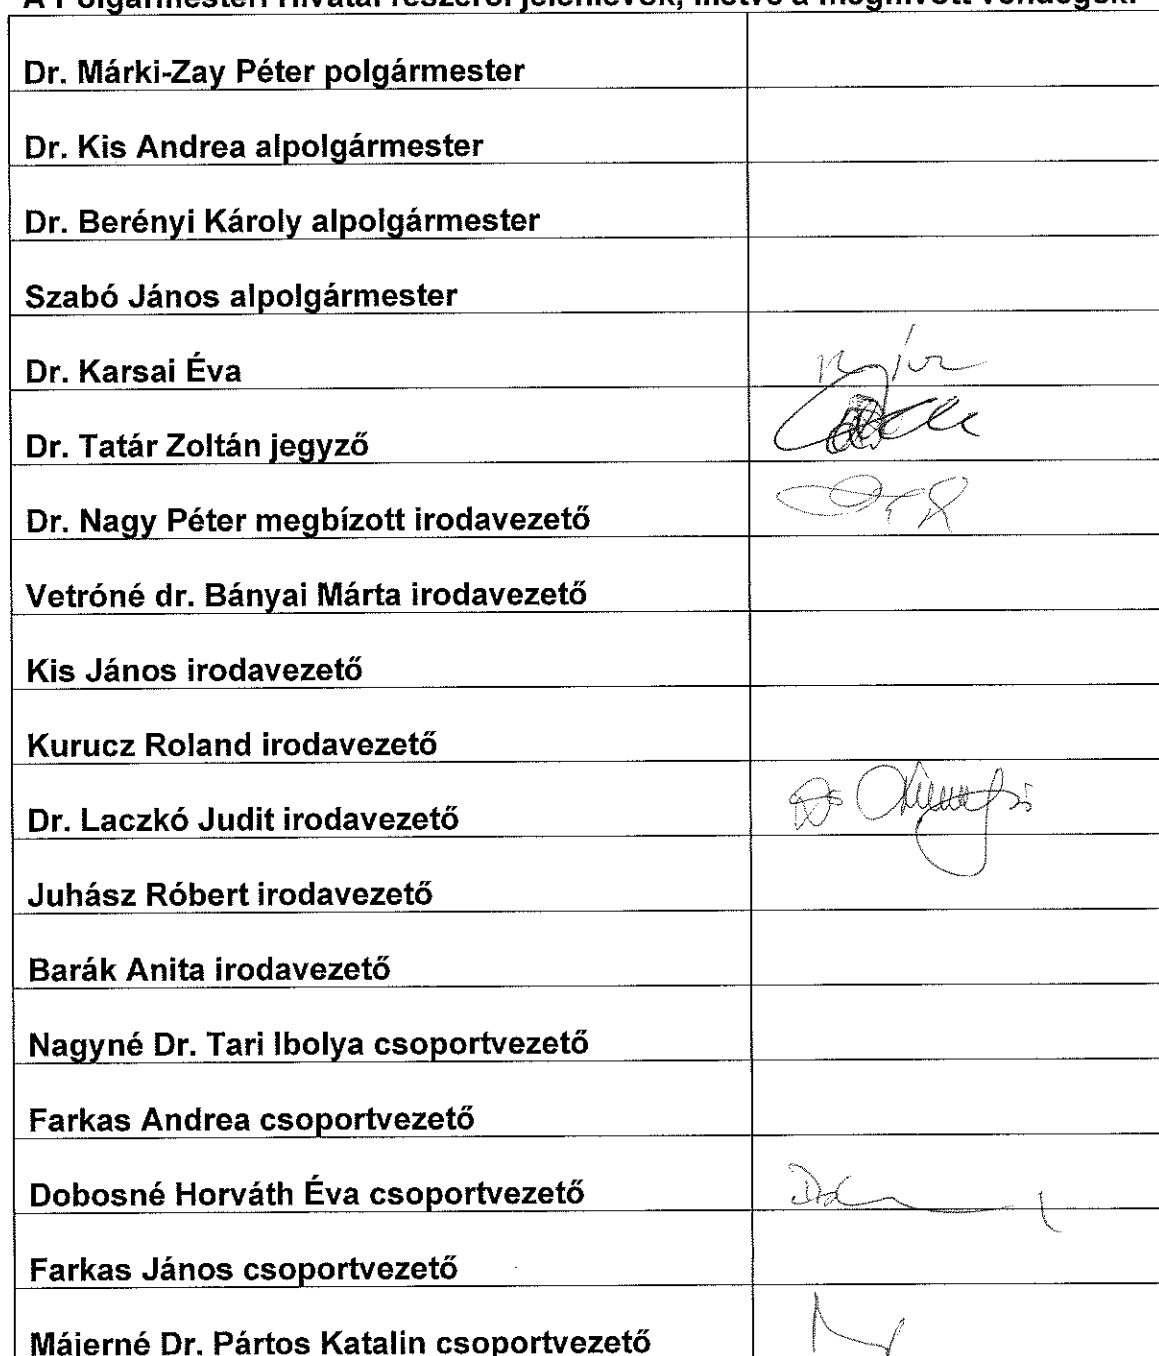 A Polgármesteri Hivatal részéről jelenlévők, illetve a meghívott vendégek:
Dr. Márki-Zay Péter polgármester
Dr. Kis Andrea alpolgármester
Dr. Berényi Károly alpolgármester
Szabó János alpolgármester
Dr. Karsai Éva
Dr. Tatár Zoltán jegyző
Dr. Nagy Péter megbízott irodavezető
Vetróné dr. Bányai Márta irodavezető
Kis János irodavezető
Kurucz Roland irodavezető
Dr. Laczkó Judit irodavezető
Juhász Róbert irodavezető
Barák Anita irodavezető
Nagyné Dr. Tari Ibolya csoportvezető
Farkas Andrea csoportvezető
Dobosné Horváth Éva csoportvezető
Farkas János csoportvezető
Májerné Dr. Pártos Katalin csoportvezető